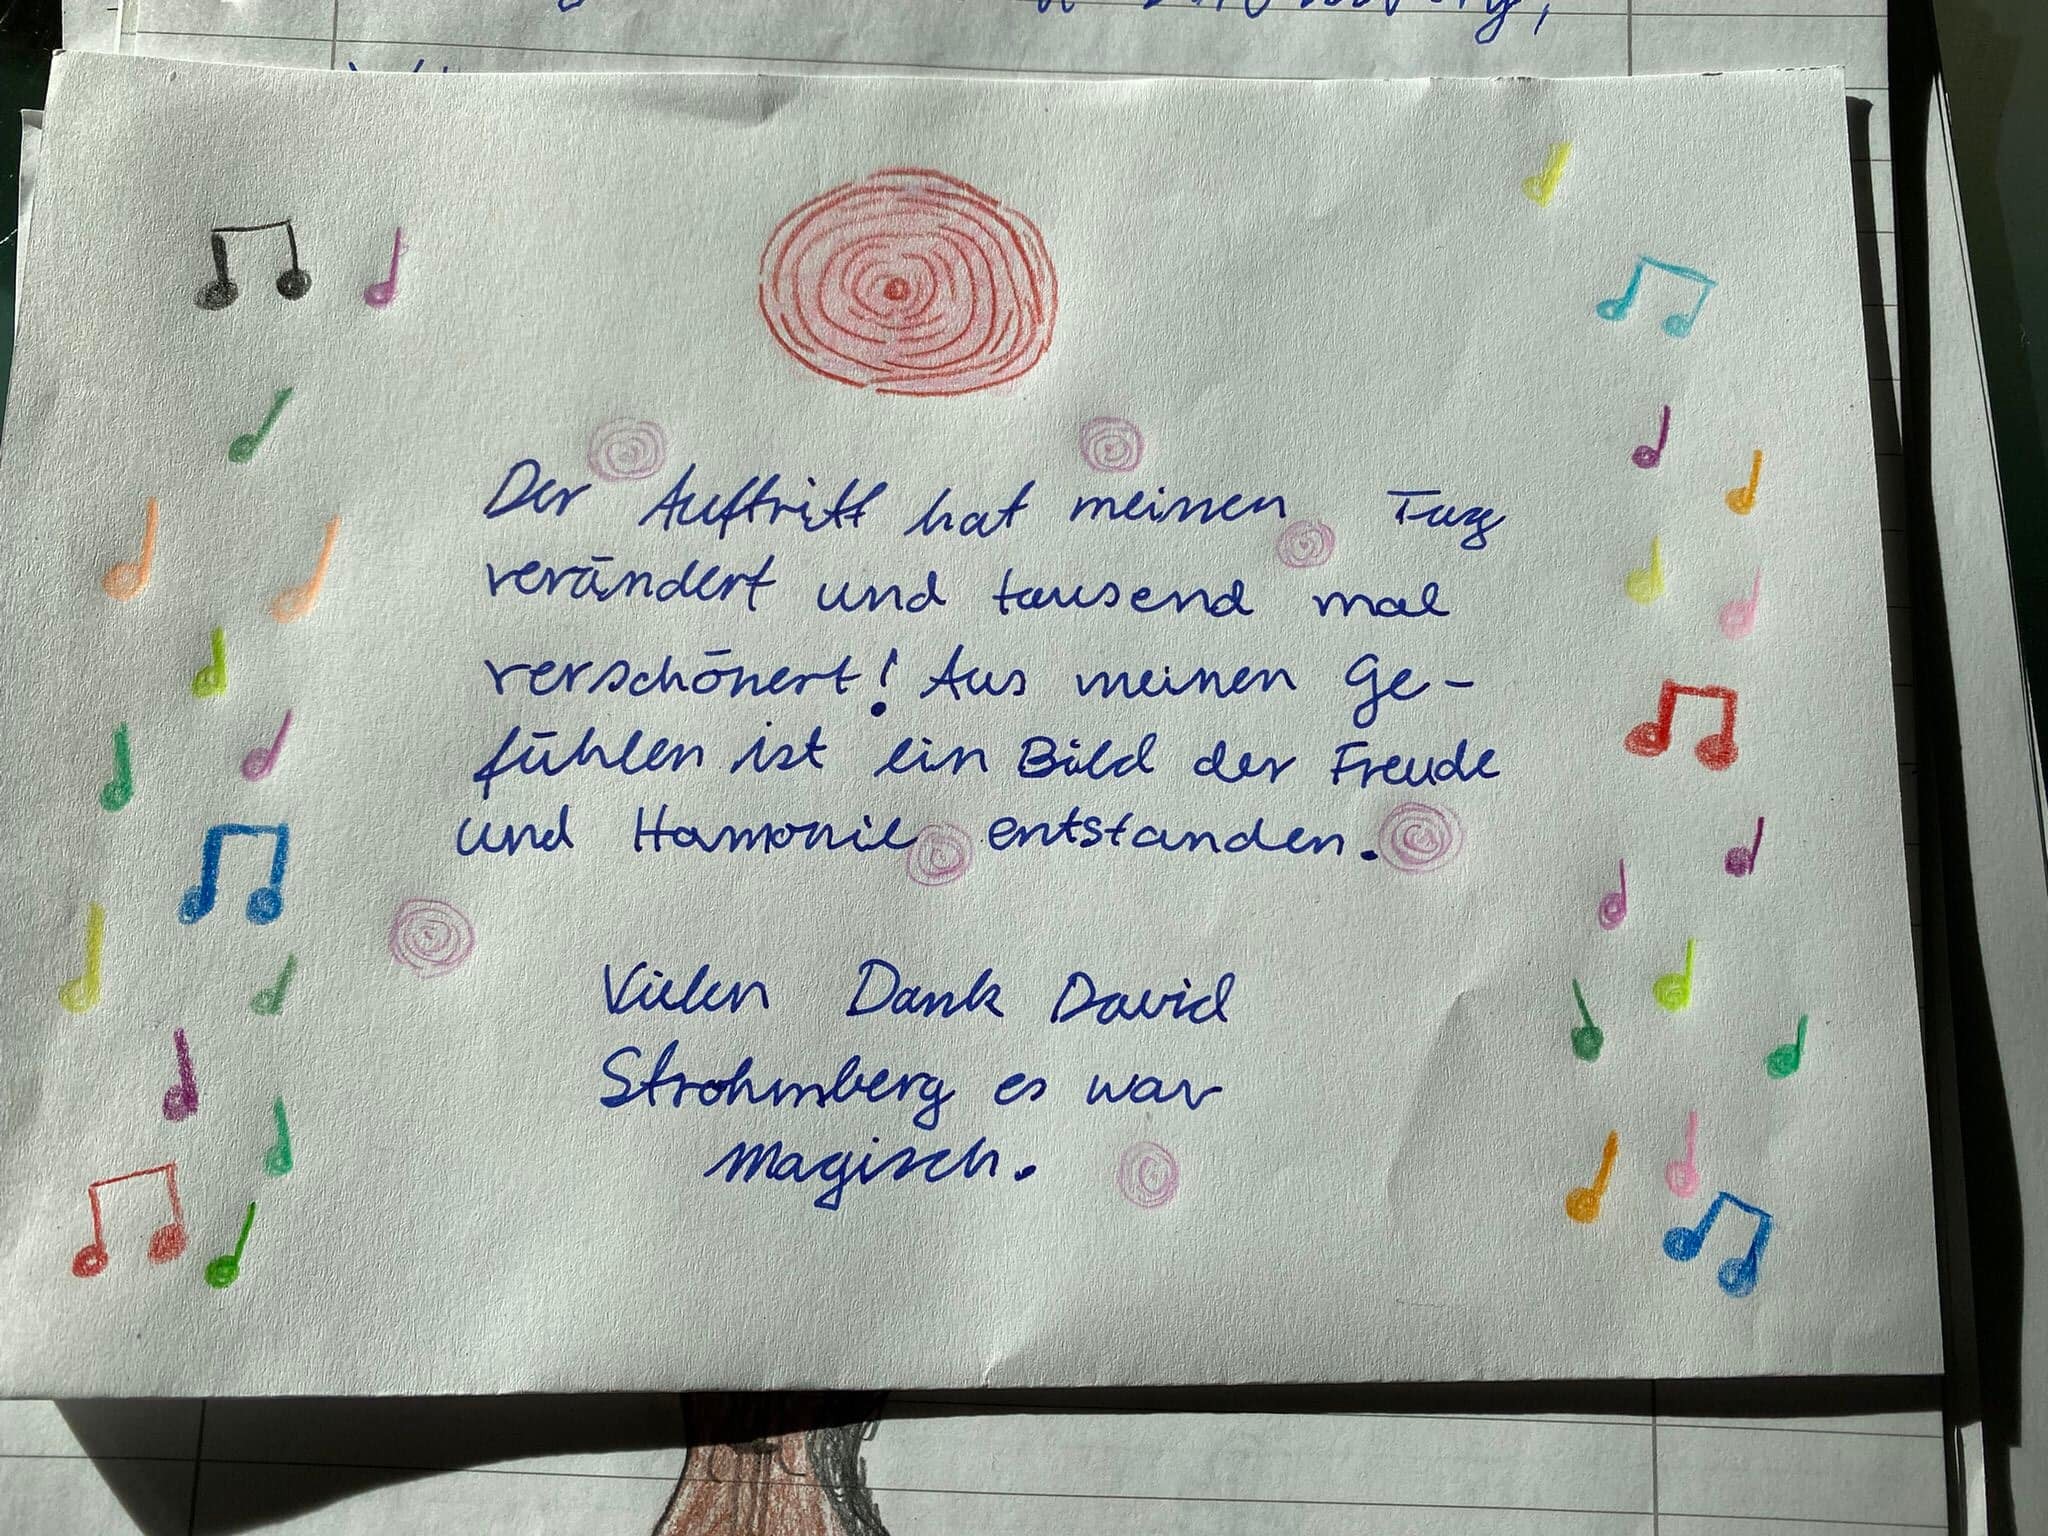 Der Auftritt hat meinen Tag
verändert und tausend mal
verschönert! Aus meinen Ge-
fühlen ist ein Bild der Freude
und Hamonie entstanden.
Vielen Dank David
Strohmberg es war
Magisch.